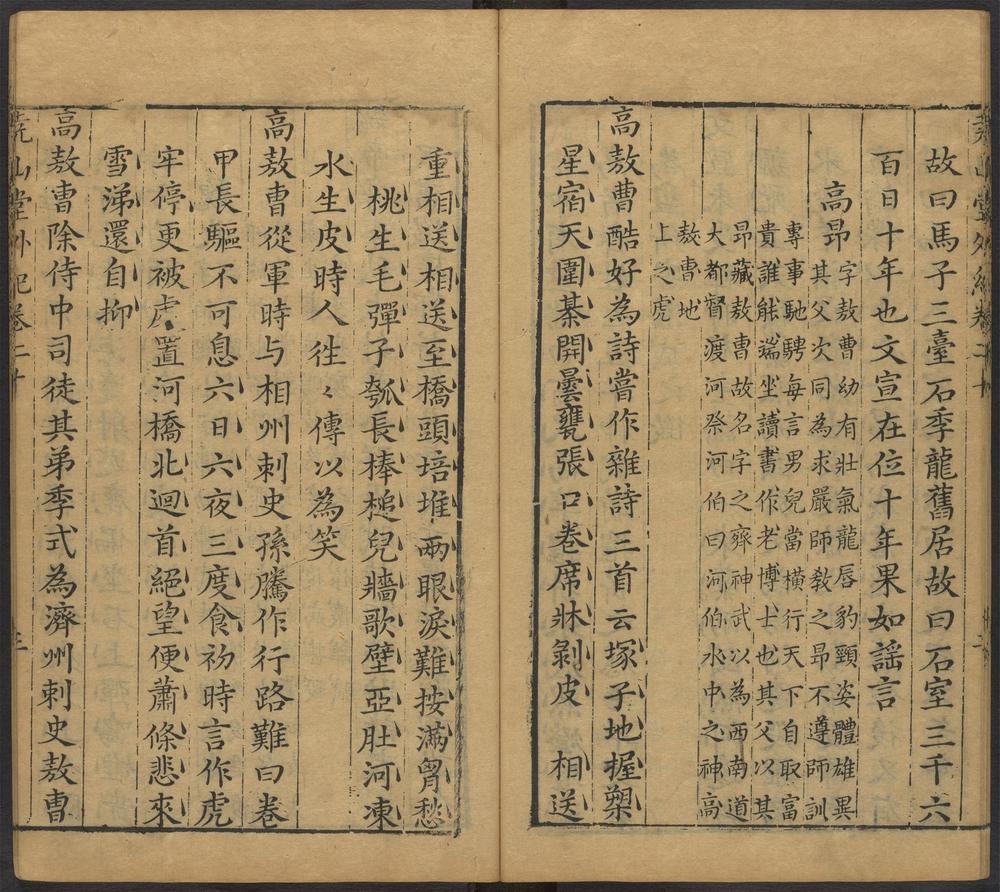 故曰馬子三臺石季龍舊居故曰石室三千六
百日十年也文宣在位十年果如謡言
高昂
字敖曹幼有壯氣龍唇豹頸姿體雄異
其父次同為求嚴師敎之昂不遵師訓
專事馳騁每言男兒當橫行天下自取富
貴誰能端坐讀書作老博士也其父以其
昂藏敖曹故名字之齊神武以為西南道
大都督渡河祭河伯曰河伯水中之神高
敖曹地
上之虎
高敖曹酷好為詩嘗作雜詩三首云塚子地握槊
星宿天圍棊開曇甕張口卷席牀剝皮　相送
重相送相送至橋頭培堆兩眼淚難按滿胷愁
桃生毛彈子瓠長棒槌兒牆歌壁亞肚河凍
水生皮時人徃〻傳以為笑
高敖曹從軍時与相州刺史孫騰作行路難曰卷
甲長驅不可息六日六夜三度食初時言作虎
牢停更被處置河橋北迴首絕望便蕭條悲來
雪涕還自抑
高敖曹除侍中司徒其弟季式為濟州刺史敖曹
堯山堂外紀卷二十